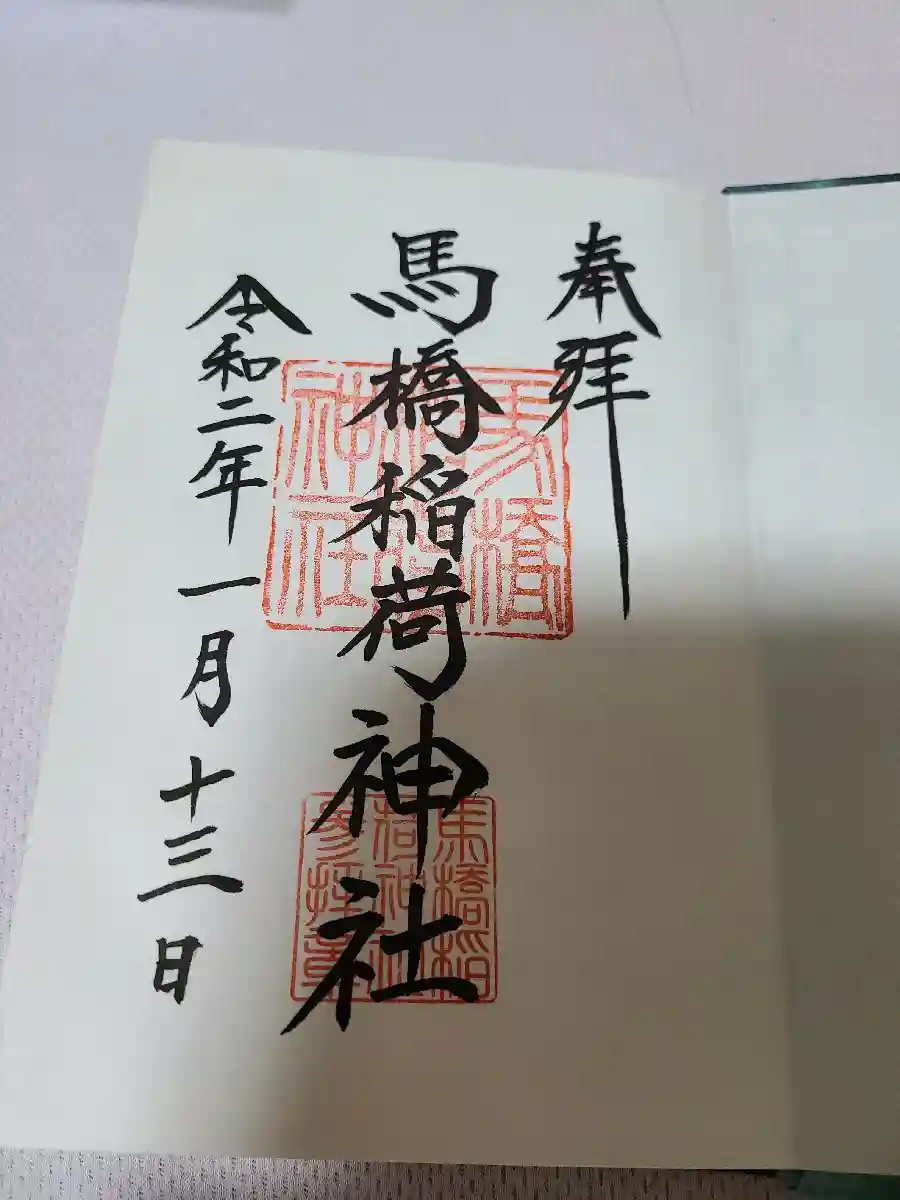 奉拝
馬橋稲荷神社
令和二年一月十三日
馬橋稲
荷神社
参拝章